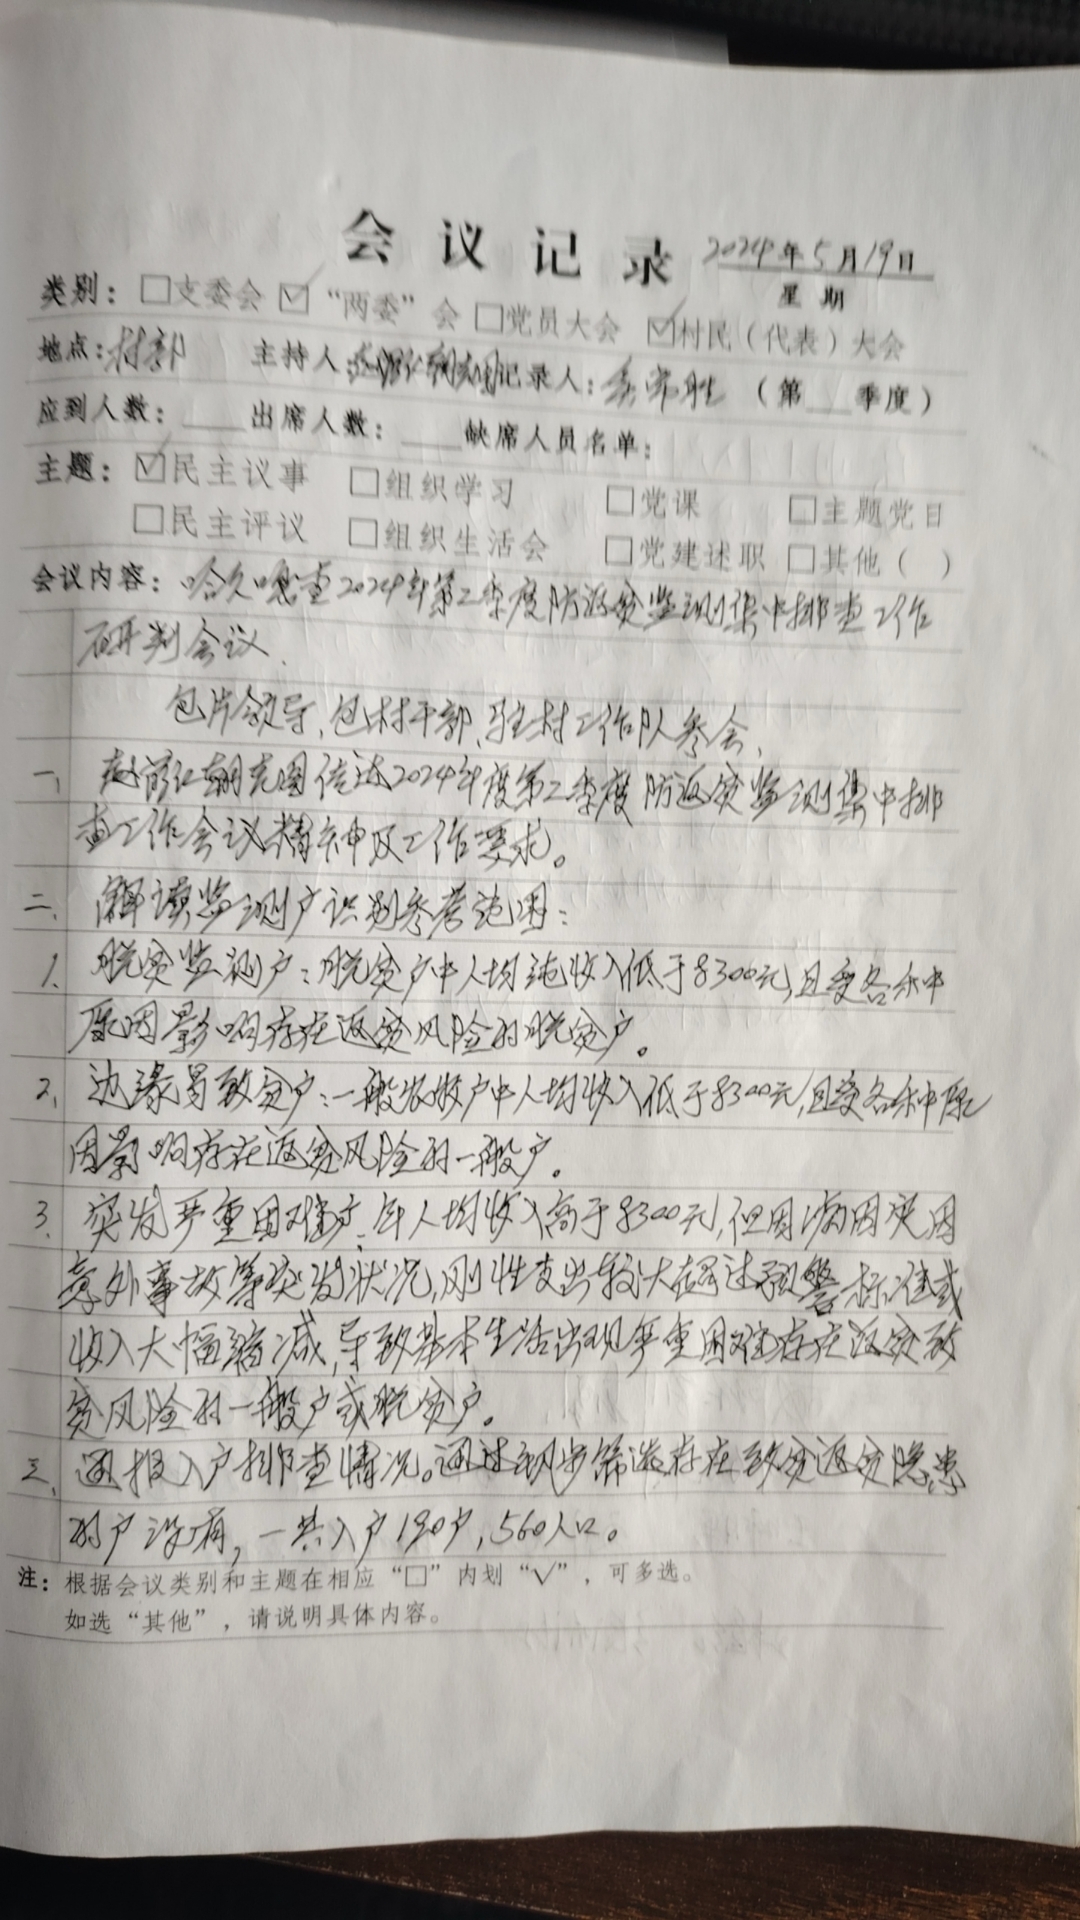 会议记录 2024年5月19日
星期
类别：□支委会 ☑“两委”会 □党员大会 ☑村民（代表）大会
地点：村部 主持人： 记录人： （第__季度）
应到人数：____出席人数：____缺席人员名单：
主题：☑民主议事 □组织学习 □党课 □主题党日
□民主评议 □组织生活会 □党建述职 □其他（ ）
会议内容：哈久嘎查2024年第二季度防返贫监测集中排查工作
研判会议.
包片领导、包村干部、驻村工作队参会、
一、 朝克图传达2024年度第二季度防返贫监测集中排
查工作会议精神及工作要求。
二、解读监测户识别参考范围：
1. 脱贫监测户：脱贫户中人均纯收入低于8300元，且受各种中
原因影响存在返贫风险的脱贫户。
2. 边缘易致贫户：一般农牧户中人均收入低于8300元，且受各种中原
因影响存在返贫风险的一般户。
3. 突发严重困难户：年人均收入高于8300元，但因病因灾因
意外事故等突发状况，刚性支出较大超过预警标准或
收入大幅缩减，导致基本生活出现严重困难存在返贫致
贫风险的一般户或脱贫户。
三、通报入户排查情况。通过初步筛选存在致贫返贫隐患
的户没有，一共入户190户，560人口。
注：根据会议类别和主题在相应“□”内划“√”，可多选。
如选“其他”，请说明具体内容。